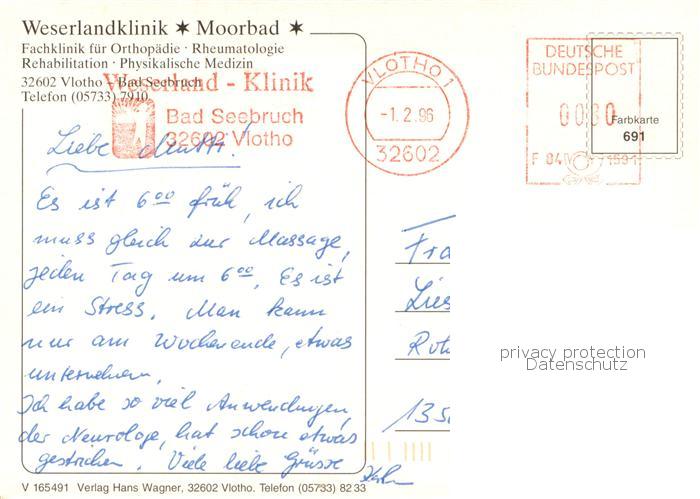 Weserlandklinik ✶ Moorbad ✶
Fachklinik für Orthopädie · Rheumatologie
Rehabilitation · Physikalische Medizin
32602 Vlotho - Bad Seebruch
Telefon (05733) 7910
Weserland - Klinik
Bad Seebruch
32602 Vlotho
VLOTHO 1
-1.2.96
32602
DEUTSCHE
BUNDESPOST
0080
F 84
1591
Farbkarte
691
Liebe Mutti!
Es ist 6⁰⁰ früh, ich
muss gleich zur Massage,
jeden Tag um 6⁰⁰, Es ist
ein Stress. Man kann
nur am Wochenende, etwas
unternehmen.
Ich habe so viel Anwendungen,
der Neurologe, hat schon etwas
gestrichen. Viele liebe Grüsse
Fra
Lies
Rot
135
privacy protection
Datenschutz
V 165491 Verlag Hans Wagner, 32602 Vlotho. Telefon (05733) 8233